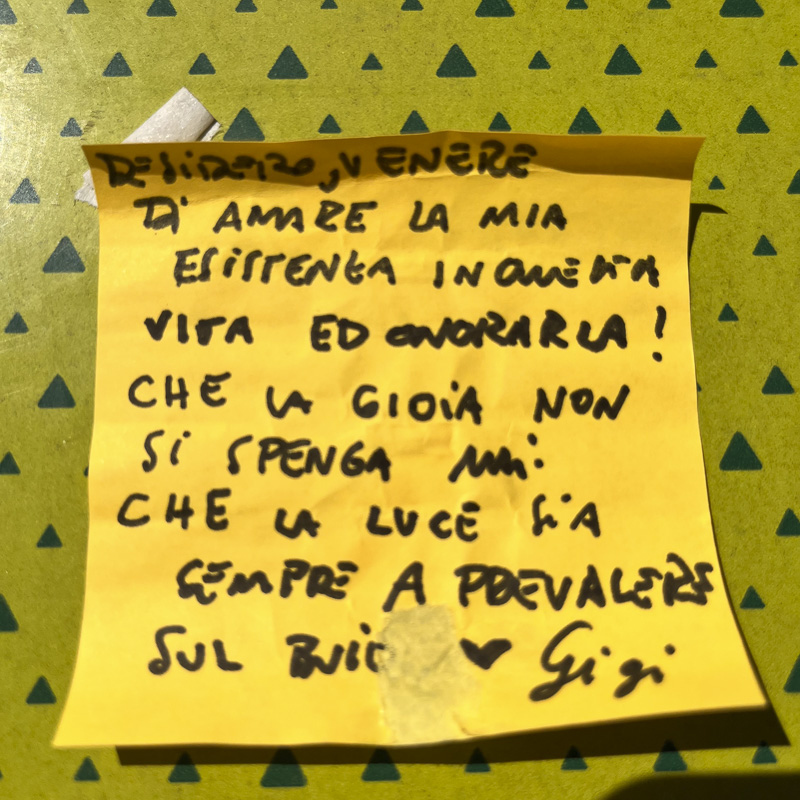 DESIDERO, VENERE
DI AMARE LA MIA
ESISTENZA IN QUESTA
VITA ED ONORARLA!
CHE LA GIOIA NON
SI SPENGA MAI
CHE LA LUCE SIA
SEMPRE A PREVALERE
SUL BUIO ♥ Gigi